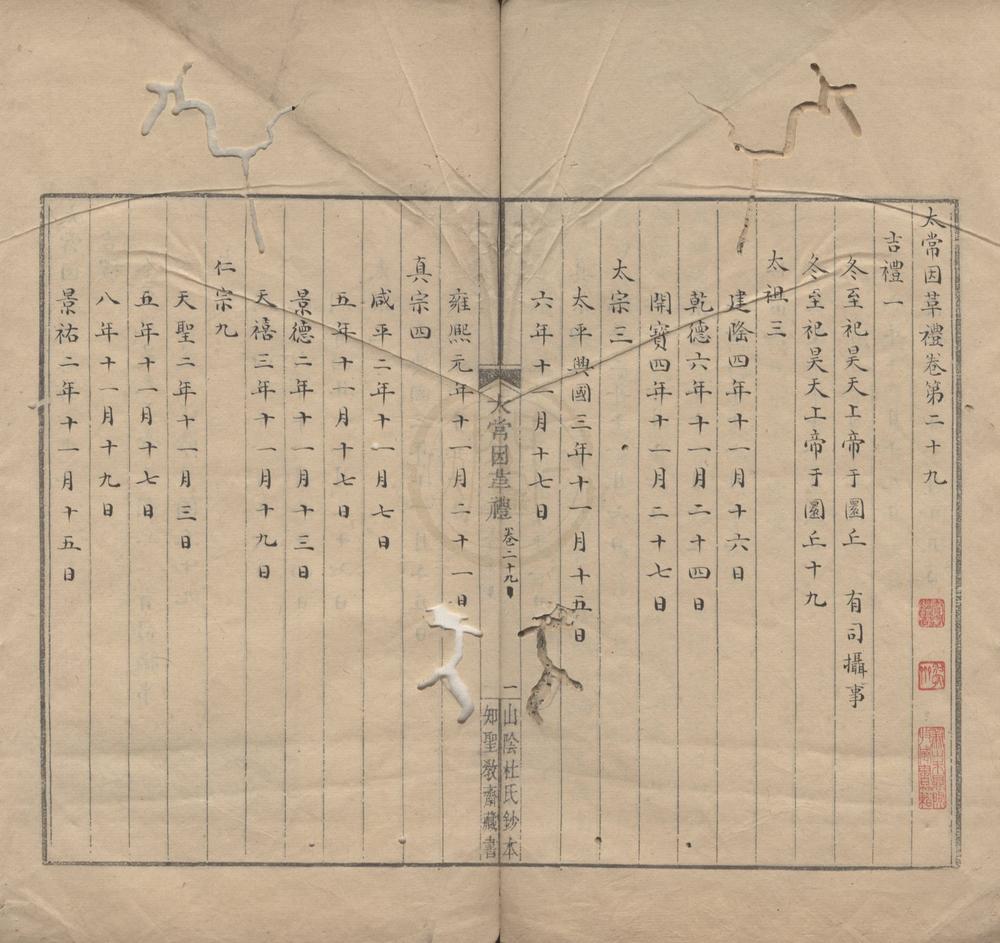 太常因革禮卷第二十九
吉禮一
冬至祀昊天上帝于圜丘 有司攝事
冬至祀昊天上帝于圜丘十九
太祖三
建隆四年十一月十六日
乾德六年十一月二十四日
開寶四年十一月二十七日
太宗三
太平興國三年十一月十五日
六年十一月十七日
太常因革禮 卷二十九 一
山陰杜氏鈔本
知聖教齋藏書
雍熙元年十一月二十一日
真宗四
咸平二年十一月七日
五年十一月十七日
景德二年十一月十三日
天禧三年十一月十九日
仁宗九
天聖二年十一月三日
五年十一月十七日
八年十一月十九日
景祐二年十一月十五日